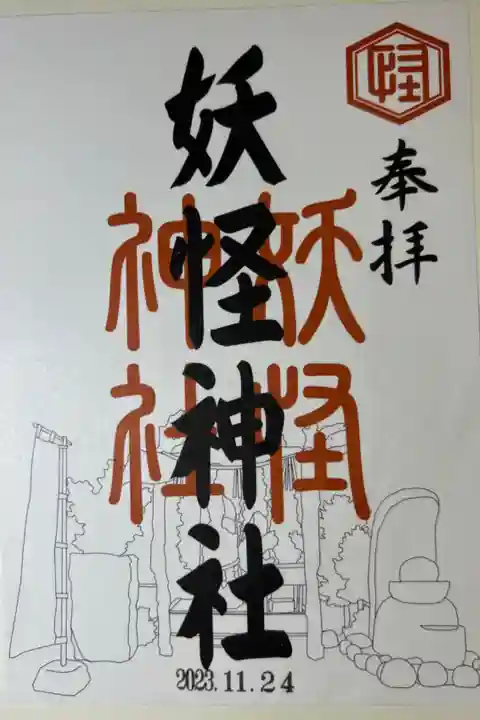 怪
奉拝
妖怪神社
妖怪
神社
2023.11.24